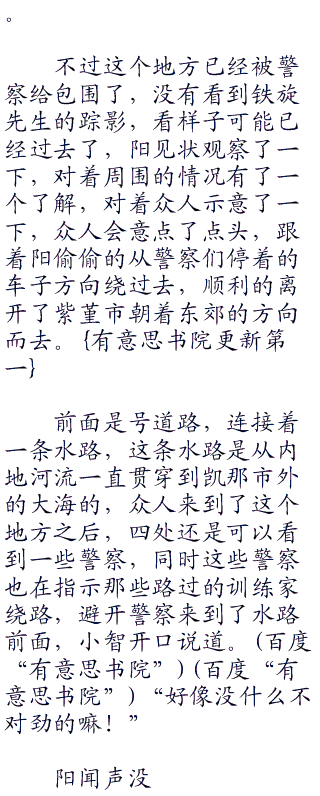 。
不过这个地方已经被警
察给包围了，没有看到铁旋
先生的踪影，看样子可能已
经过去了，阳见状观察了一
下，对着周围的情况有了一
个了解，对着众人示意了一
下，众人会意点了点头，跟
着阳偷偷的从警察们停着的
车子方向绕过去，顺利的离
开了紫堇市朝着东郊的方向
而去。{有意思书院更新第
一}
前面是号道路，连接着
一条水路，这条水路是从内
地河流一直贯穿到凯那市外
的大海的，众人来到了这个
地方之后，四处还是可以看
到一些警察，同时这些警察
也在指示那些路过的训练家
绕路，避开警察来到了水路
前面，小智开口说道。(百度
“有意思书院”)(百度“有
意思书院”)“好像没什么不
对劲的嘛！”
阳闻声没